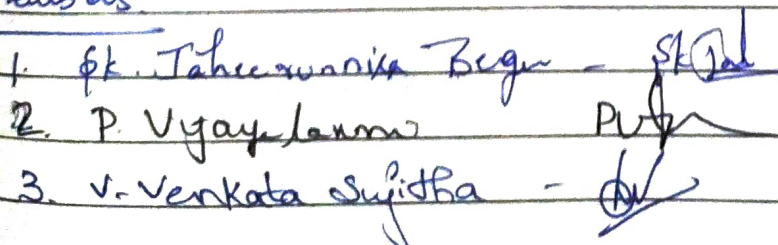 1. Sk. Taheerunnisa Begum - Sk
2. P. Vijayalaxmi
3. V. Venkata Sujitha -